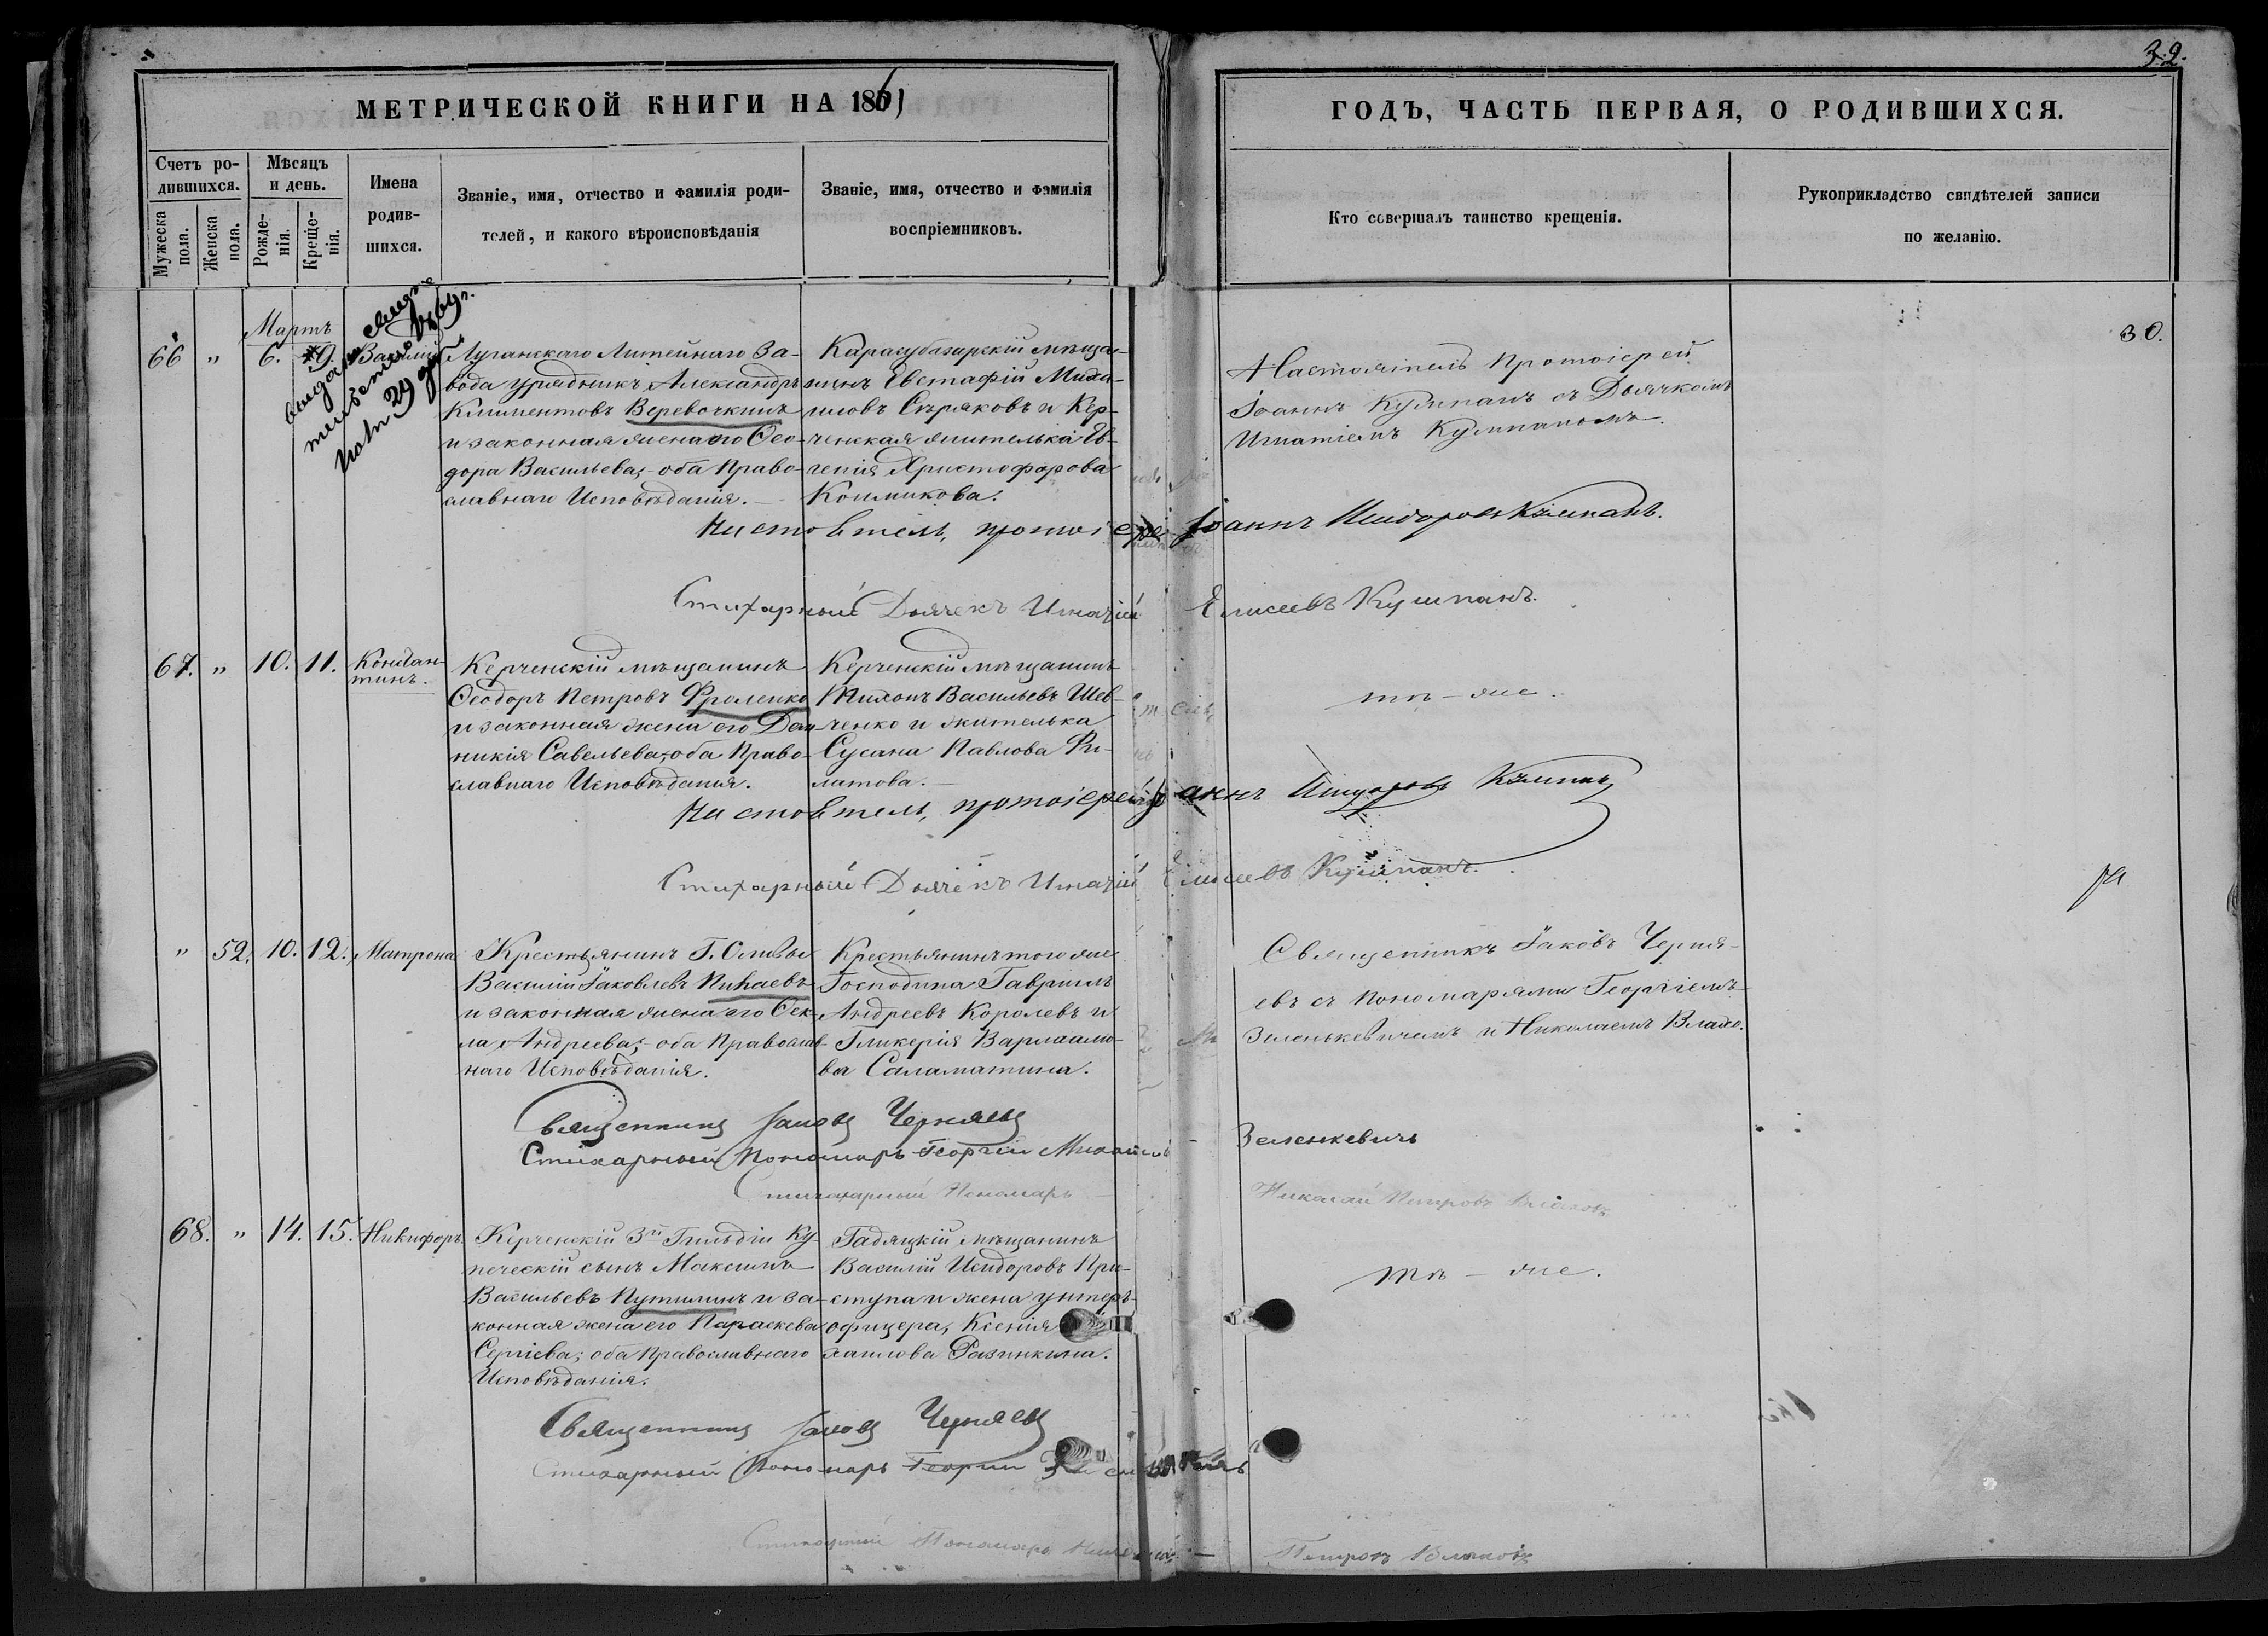 32.
МЕТРИЧЕСКОЙ КНИГИ НА 1861
ГОДЪ, ЧАСТЬ ПЕРВАЯ, О РОДИВШИХСЯ.
Счетъ ро-
дившихся.
Мужеска
пола.
Женска
пола.
Мѣсяцъ
и день.
Рожде-
нія.
Креще-
нія.
Имена
родив-
шихся.
Званіе, имя, отчество и фамилія роди-
телей, и какого вѣроисповѣданія
Званіе, имя, отчество и фамилія
воспріемниковъ.
Кто совершалъ таинство крещенія.
Рукоприкладство свидѣтелей записи
по желанію.
Мартъ
30.
66 „ 6. 9. Василій
Луганскаго Литейнаго За-
вода урядникъ Александръ
Климентовъ Веревочкинъ
и законная жена его Ѳео-
дора Васильева, оба Право-
славнаго Исповѣданія.
Карасубазарскій мѣща-
нинъ Евстафій Миха-
иловъ Сѣряковъ и Кер-
ченская жителька Ев-
генія Христофорова
Настоятель Протоіерей
Іоаннъ Кушпанъ съ Дьячкомъ
Игнатіемъ Кушпаномъ.
Настоятель, протоіерей Іоаннъ Исидоровъ Кушпанъ.
Стихарный Дьячекъ Игнатій Елисеевъ Кушпанъ.
67. „ 10. 11. Констан-
тинъ.
Керченскій мѣщанинъ
Ѳеодоръ Петровъ Фроленко
и законная жена его Дом-
никія Савельева, оба Право-
славнаго Исповѣданія.
Керченскій мѣщанинъ
Тихонъ Васильевъ Шев-
ченко и жителька
Сусана Павлова Фи-
латова.
тѣ-же.
Настоятель, протоіерей Іоаннъ Исидоровъ Кушпанъ
Стихарный Дьячекъ Игнатій Елисеевъ Кушпанъ.
„ 52. 10. 12. Матрона
Крестьянинъ Г. Оливы
Василій Іаковлевъ Пихаевъ
и законная жена его Ѳек-
ла Андреева; оба Православ-
наго Исповѣданія.
Крестьянинъ того же
Господина Гавріилъ
Андреевъ Королевъ и
Гликерія Варлаамо-
ва Саламатина.
Священникъ Іаковъ Черня-
евъ съ Пономарями Георгіемъ
Зеленькевичемъ и Николаемъ Влахо.
Священникъ Іаковъ Черняевъ
Стихарный Пономарь Георгій Михайловъ Зеленкевичъ
Стихарный Пономарь Николай Петровъ
68. „ 14. 15. Никифоръ.
Керченскій 3й Гильдіи Ку-
печескій сынъ Максимъ
Васильевъ Путилинъ и за-
конная жена его Параскева
Сергіева; оба Православнаго
Исповѣданія.
Гадяцкій мѣщанинъ
Василій Исидоровъ При-
ступа и жена унтеръ-
офицера, Ксенія
хаилова Разинкина.
тѣ-же.
Священникъ Іаковъ Черняевъ
Стихарный Пономарь Георгій
Стихарный Пономарь Николай Петровъ